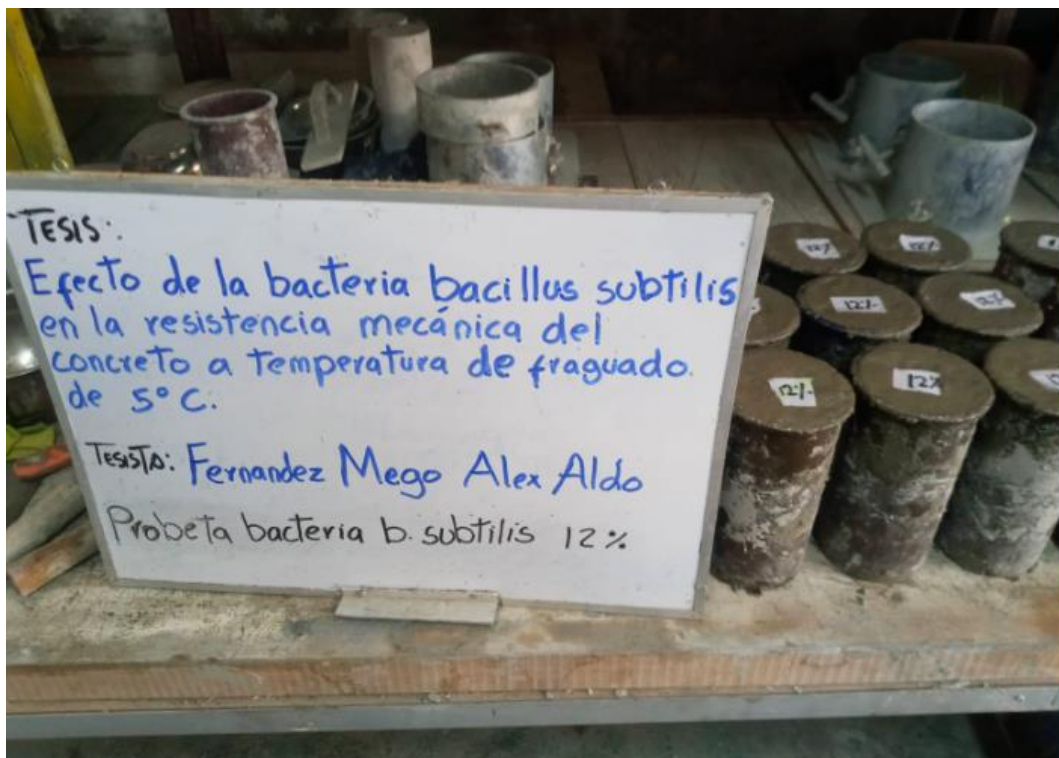 TESIS:
Efecto de la bacteria bacillus subtilis
en la resistencia mecánica del
concreto a temperatura de fraguado.
de 5°C.
TESISTA: Fernandez Mego Alex Aldo
Probeta bacteria b. subtilis 12%
12%
12%
12%
12%
12%
12%